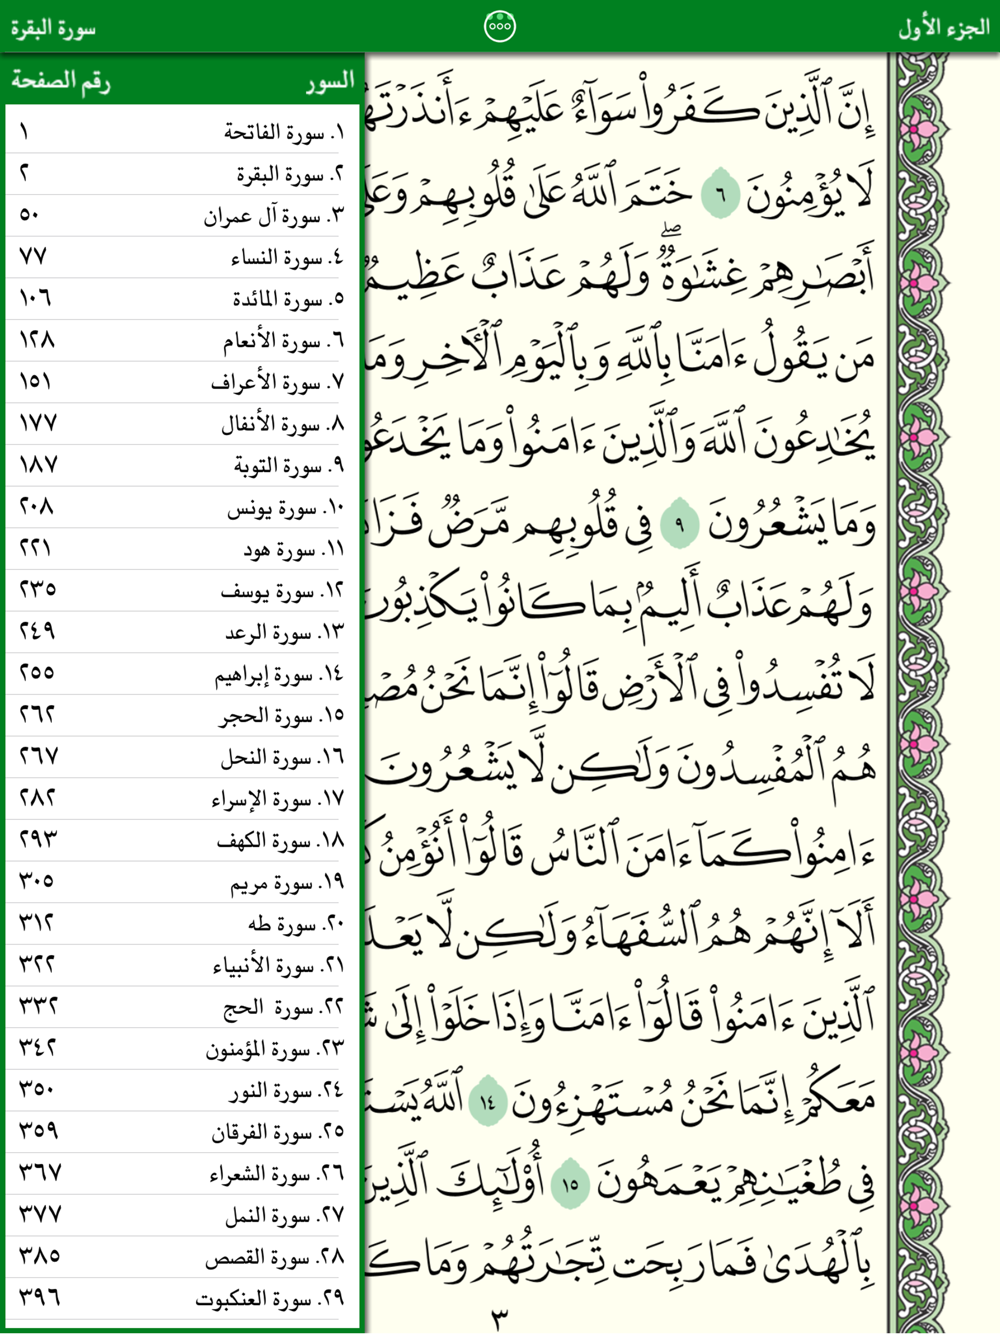 الجزء الأول
سورة البقرة
إِنَّ ٱلَّذِينَ كَفَرُواْ سَوَآءٌ عَلَيۡهِمۡ
لَا يُؤۡمِنُونَ ٦ خَتَمَ ٱللَّهُ عَلَىٰ قُلُوبِهِمۡ
أَبۡصَٰرِهِمۡ غِشَٰوَةٞۖ وَلَهُمۡ عَذَابٌ عَظِيمٞ
مَن يَقُولُ ءَامَنَّا بِٱللَّهِ وَبِٱلۡيَوۡمِ ٱلۡأٓخِرِ
يُخَٰدِعُونَ ٱللَّهَ وَٱلَّذِينَ ءَامَنُواْ وَمَا
وَمَا يَشۡعُرُونَ ٩ فِي قُلُوبِهِم مَّرَضٞ
وَلَهُمۡ عَذَابٌ أَلِيمُۢ بِمَا كَانُواْ يَكۡذِبُونَ
لَا تُفۡسِدُواْ فِي ٱلۡأَرۡضِ قَالُوٓاْ إِنَّمَا نَحۡنُ
هُمُ ٱلۡمُفۡسِدُونَ وَلَٰكِن لَّا يَشۡعُرُونَ
ءَامِنُواْ كَمَآ ءَامَنَ ٱلنَّاسُ قَالُوٓاْ أَنُؤۡمِنُ
أَلَآ إِنَّهُمۡ هُمُ ٱلسُّفَهَآءُ وَلَٰكِن لَّا
ٱلَّذِينَ ءَامَنُواْ قَالُوٓاْ ءَامَنَّا وَإِذَا خَلَوۡاْ إِلَىٰ
مَعَكُمۡ إِنَّمَا نَحۡنُ مُسۡتَهۡزِءُونَ ١٤ ٱللَّهُ
فِي طُغۡيَٰنِهِمۡ يَعۡمَهُونَ ١٥ أُوْلَٰٓئِكَ ٱلَّذِينَ
بِٱلۡهُدَىٰ فَمَا رَبِحَت تِّجَٰرَتُهُمۡ وَمَا
٣
السور رقم الصفحة
١. سورة الفاتحة ١
٢. سورة البقرة ٢
٣. سورة آل عمران ٥٠
٤. سورة النساء ٧٧
٥. سورة المائدة ١٠٦
٦. سورة الأنعام ١٢٨
٧. سورة الأعراف ١٥١
٨. سورة الأنفال ١٧٧
٩. سورة التوبة ١٨٧
١٠. سورة يونس ٢٠٨
١١. سورة هود ٢٢١
١٢. سورة يوسف ٢٣٥
١٣. سورة الرعد ٢٤٩
١٤. سورة إبراهيم ٢٥٥
١٥. سورة الحجر ٢٦٢
١٦. سورة النحل ٢٦٧
١٧. سورة الإسراء ٢٨٢
١٨. سورة الكهف ٢٩٣
١٩. سورة مريم ٣٠٥
٢٠. سورة طه ٣١٢
٢١. سورة الأنبياء ٣٢٢
٢٢. سورة الحج ٣٣٢
٢٣. سورة المؤمنون ٣٤٢
٢٤. سورة النور ٣٥٠
٢٥. سورة الفرقان ٣٥٩
٢٦. سورة الشعراء ٣٦٧
٢٧. سورة النمل ٣٧٧
٢٨. سورة القصص ٣٨٥
٢٩. سورة العنكبوت ٣٩٦